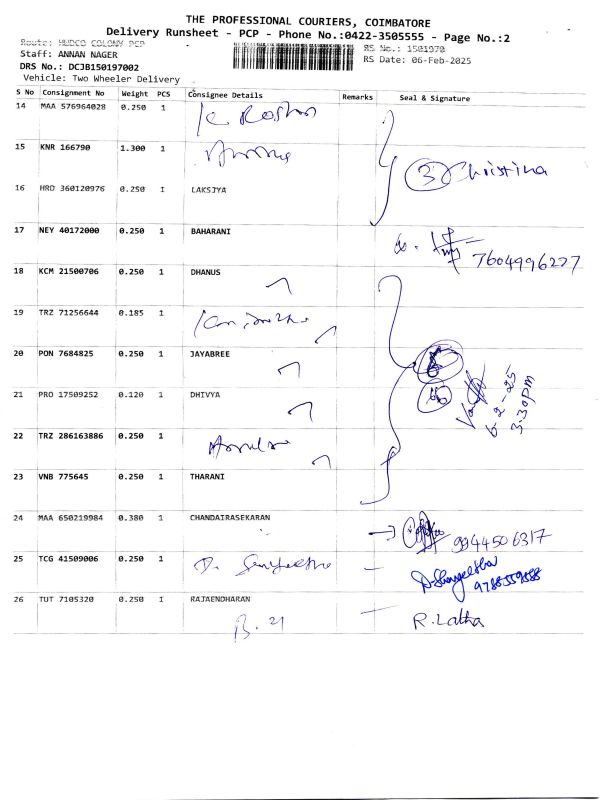 THE PROFESSIONAL COURIERS, COIMBATORE
Delivery Runsheet - PCP - Phone No.:0422-3505555 - Page No.:2
Route: HUDCO COLONY PCP
RS No.: 1501970
Staff: ANNAN NAGER
RS Date: 06-Feb-2025
DRS No.: DCJB150197002
Vehicle: Two Wheeler Delivery
S No Consignment No Weight PCS Consignee Details Remarks Seal & Signature
14 MAA 576964028 0.250 1
15 KNR 166790 1.300 1
3 Christina
16 HRO 360120976 0.250 1 LAKSJYA
17 NEY 40172000 0.250 1 BAHARANI
7604996227
18 KCM 21500706 0.250 1 DHANUS
19 TRZ 71256644 0.185 1
20 PON 7684825 0.250 1 JAYABREE
21 PRO 17509252 0.120 1 DHIVYA
6-2-25
3.30pm
22 TRZ 286163886 0.250 1
23 VNB 775645 0.250 1 THARANI
24 MAA 650219984 0.380 1 CHANDAIRASEKARAN
9944506317
25 TCG 41509006 0.250 1 D. Sangeetha
D. Sangeetha
26 TUT 7105320 0.250 1 RAJAENDHARAN
R. Latha
B. 21